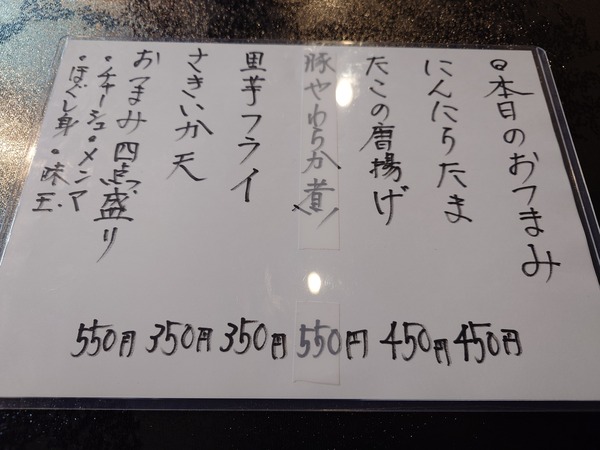 ◎本日のおつまみ
にんにらたま
450円
たこの唐揚げ
450円
豚やわらか煮
550円
里芋フライ
350円
さきいか天
350円
おつまみ四点盛り
550円
・チャーシュ・メンマ
・ほぐし身・味玉